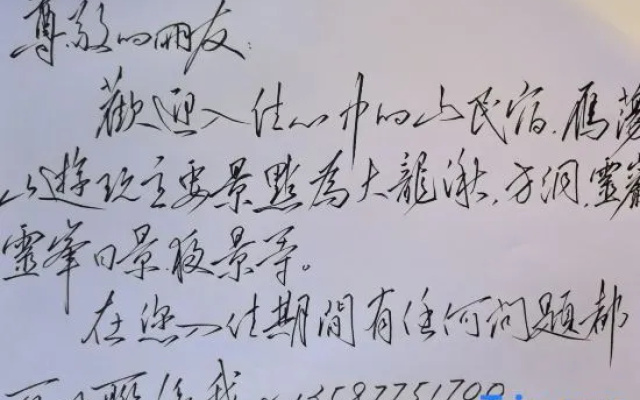 尊敬的朋友:
歡迎入住心中的山民宿.雁蕩
山遊玩主要景點為大龍湫.方洞.靈巖
靈峯日景.夜景等。
在您入住期間有任何問題都
可以聯係我